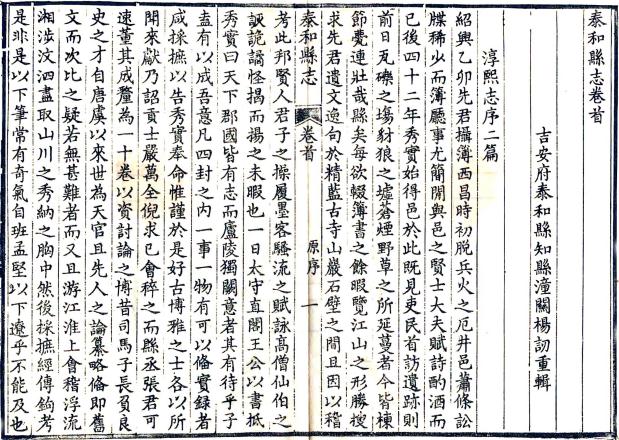 泰和縣志卷首
吉安府泰和縣知縣潼關楊訒重輯
淳熙志序二篇
紹興乙卯先君攝簿西昌時初脫兵火之厄井邑蕭條訟
牒稀少而簿廳事尤簡閒與邑之賢士大夫賦詩酌酒而
已後四十二年秀實始得邑於此既見吏民首訪遺跡則
前日瓦礫之塲豺狼之墟蒼煙野草之所延蔓者今皆棟
節甍連壯哉縣矣每欲輟簿書之餘暇覽江山之形勝搜
求先君遺文逸句於精藍古寺山巖石壁之間且因以稽
泰和縣志
卷首
原序
一
考此邦賢人君子之操履墨客騷流之賦詠高僧仙伯之
詼詭譎怪揭而揚之未暇也一日太守直閣王公以書抵
秀實曰天下郡國皆有志而廬陵獨闕意者其有待乎子
盍有以成吾意凡四封之内一事一物有可以備實録者
咸採摭以告秀實奉命惟謹於是好古博雅之士各以所
聞來獻乃詔貢士嚴萬全倪求已會稡之而縣丞張君可
速董其成釐為一十卷以資討論之博昔司馬子長負良
史之才自唐虞以來世為天官且先人之論纂略備即舊
文而次比之疑若無甚難者而又且游江淮上會稽浮沅
湘涉汶泗盡取山川之秀納之胸中然後採摭經傳鉤考
是非是以下筆常有奇氣自班孟堅以下遼乎不能及也